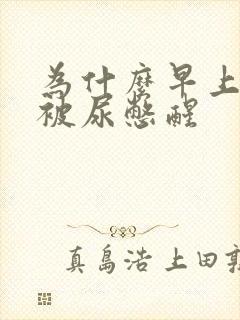 為什麼早上
被尿憋醒
真島浩 上田